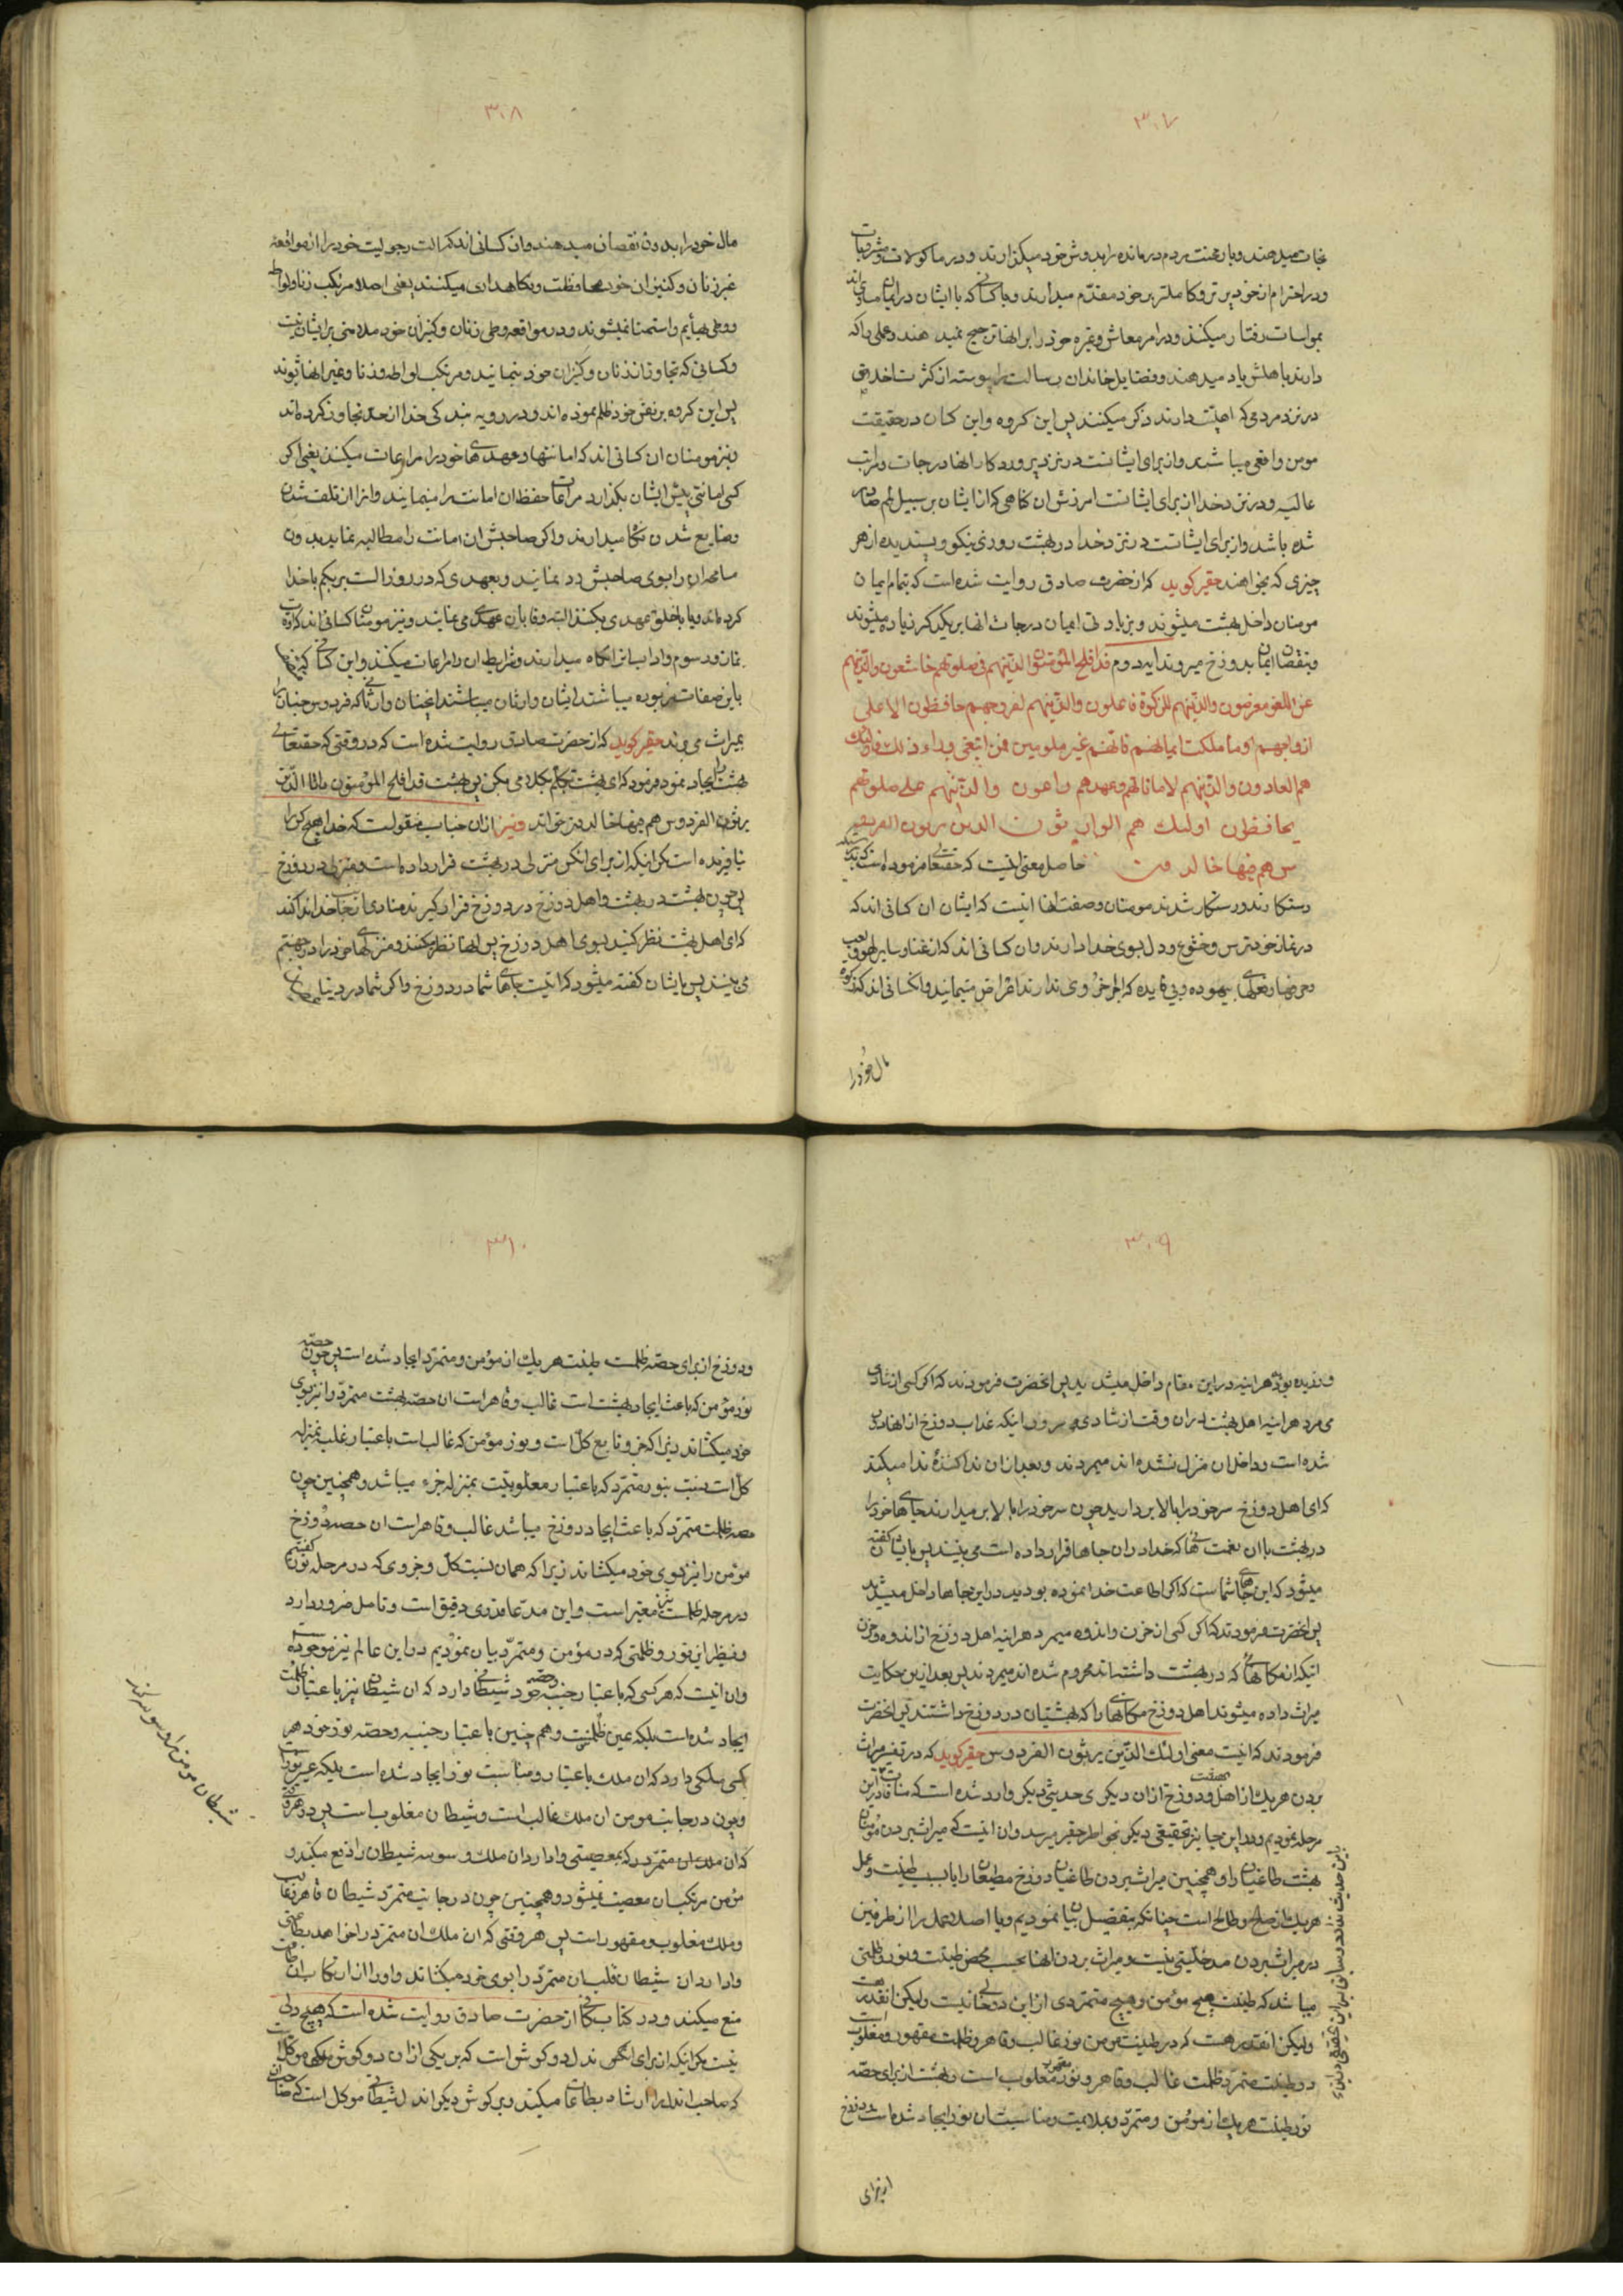 ۳۰۷
نجات میدهند و بار محنت مردم درمانده را بدوش خود میکزارند و در ماکولات و مشروبات
و در احترام از خود پیرتر و کاملتر بر خود مقدم میدارند و با کسانی که با ایشان در ایمان مساوی اند
بمواسات رفتار میکنند و در امر معاش و غیره خود را بر انها ترجیح نمیدهند و علمی را که
دارند باهلش یاد میدهند و فضایل خاندان رسالت را پیوسته از کثرت اخلاص
در نزد مردمی که اهلیت دارند ذکر میکنند پس این کروه و این کسان در حقیقت
مومن واقعی میباشند و از برای ایشانست در نزد پروردکار انها درجات و مراتب
عالیه و در نزد خدا از برای ایشانست امرزش ان کناهی که از ایشان بر سبیل لمم صادر
شده باشد و از برای ایشانست در نزد خدا در بهشت روزی نیکو و پسندیده از هر
چیزی که بخواهند حقیر کوید که از حضرت صادق روایت شده است که بتمام ایمان
مومنان داخل بهشت میشوند و بزیادتی ایمان درجات انها بر یکدیکر زیاده میشوند
و بنقصان ایمان بدوزخ میروند ایه دوم قد افلح المؤمنون الذینهم فی صلوتهم خاشعون والذینهم
عن اللغو معرضون والذینهم للزکوة فاعلون والذینهم لفروجهم حافظون الا علی
ازواجهم او ما ملکت ایمانهم فانهم غیر ملومین فمن ابتغی وراء ذلك فاولئك
هم العادون والذینهم لاماناتهم وعهدهم راعون والذینهم علی صلوتهم
یحافظون اولئك هم الوارثون الذین یرثون الفردو
س هم فیها خالدون حاصل معنی اینست که حقتعا فرموده است که بتحقیق
رستکارند و رستکار شدند مومنان و صفت انها اینست که ایشان ان کسانی اند که
در نماز خود ترس و خشوع و دل بسوی خدا دارند و ان کسانی اند که از غنا و سایر لهو و لعب
و حرفها و فعلهای بیهوده و بی فایده که اجر اخروی ندارند اعراض مینمایند و انکسانی اند که زکوة
مال خود را
۳۰۸
مال خود را بدون نقصان میدهند و ان کسانی اند که الت رجولیت خود را از مواقعه
غیر زنان و کنیزان خود محافظت و نکاهداری میکنند یعنی اصلا مرتکب زنا و لواطه
و وطی بهایم و استمنا نمیشوند و در مواقعه و وطی زنان و کنیزان خود ملامتی بر ایشان نیست
و کسانی که تجاوز از زنان و کنیزان خود بنمایند و مرتکب لواطه و زنا و غیر انها شوند
پس این کروه بر نفس خود ظلم نموده اند و در رویه بندکی خدا از حد تجاوز کرده اند
و نیز مومنان ان کسانی اند که امانتها و عهدهای خود را مراعات میکنند یعنی اکر
کسی امانتی پیش ایشان بکذارد مراعات حفظ ان امانت را مینمایند و انرا از تلف شدن
و ضایع شدن نکاه میدارند و اکر صاحبش ان امانت را مطالبه نماید بدون
مسامحه ان را بسوی صاحبش رد بنمایند و بعهدی که در روز الست بربکم با خدا
کرده اند و یا با خلق عهدی بکنند البته وفا بان عهد می نمایند و نیز مومنان کسانی اند که اوقات
نماز و رسوم و اداب انرا نکاه میدارند و شرایط ان را مراعات میکنند و این کسانی که
باین صفات مزبوره میباشند ایشان وارثان میباشند انچنان وارثانی که فردوس جنان را
بمیراث می برند حقیر کوید که از حضرت صادق روایت شده است که در وقتی که حقتعالی
بهشت را ایجاد نمود فرمود که ای بهشت تکلم بکلامی بکن پس بهشت قد افلح المؤمنون را تا الذین
یرثون الفردوس هم فیها خالدون خواند و نیز از ان جناب منقولست که خدا هیچ کس را
نیافریده است مکر اینکه از برای انکس منزلی در بهشت قرار داده است و منزلی در دوزخ
پس چون اهل بهشت در بهشت و اهل دوزخ در دوزخ قرار کیرند منادی از جانب خدا ندا کند
که ای اهل بهشت نظر کنید بسوی اهل دوزخ پس انها نظر میکنند و منزلهای خود را در جهنم
می بینند پس بایشان کفته میشود که اینست جاهای شما در دوزخ و اکر شما در دنیا
۳۰۹
ورزیده بودید هر اینه در این مقام داخل میشدید پس انحضرت فرمودند که اکر کسی از شادی
می مرد هر اینه اهل بهشت در ان وقت از شادی و سرور اینکه عذاب دوزخ از انها دور
شده است و داخل ان منزل نشده اند میمردند و بعد از ان ندا کنندهٔ ندا میکند
که ای اهل دوزخ سر خود را بالا بردارید چون سر خود را بالا بر میدارند جاهای خود را
در بهشت با ان نعمتهائی که خدا در ان جاها قرار داده است می بینند پس بایشان کفته
میشود که این جاهای شماست که اکر اطاعت خدا نموده بودید در این جاها داخل میشدید
پس انحضرت فرمودند که اکر کسی از حزن و اندوه میمرد هر اینه اهل دوزخ از اندوه و حزن
اینکه از مکانهائی که در بهشت داشتند محروم شده اند میمردند پس بعد از این حکایت
میراث داده میشوند اهل دوزخ مکانهائی را که بهشتیان در دوزخ داشتند پس انحضرت
فرمودند که اینست معنی اولئك الذین یرثون الفردوس حقیر کوید که در تفسیر میراث
بردن هر یك از اهل بهشت و دوزخ از ان دیکری حدیثی دیکر وارد شده است که منافات در این
مرحله نمودیم و در این جا نیز تحقیقی دیکر بخواطر حقیر میرسد و ان اینست که میراث بردن مؤمنان
بهشت طاغیان را و همچنین میراث بردن طاغیان دوزخ مطیعان را یا بسبب طینت و عمل
هر یك از صالح و طالح است چنانکه بتفصیل بیان نمودیم و یا اصلا عمل را از طرفین
در میراث بردن مدخلیتی نیست و میراث بردن انها بحسب محض طینت و نور و ظلمتی
میباشد که طینت هیچ مؤمن و هیچ متمردی از این دو خالی نیست ولیکن اینقدر هست
ولیکن اینقدر هست که در طینت مومن نور غالب و قاهر و ظلمت مقهور و مغلوب است
در طینت متمرد ظلمت غالب و قاهر و نور مقهور و مغلوب است و بهشت از برای حصهٔ
نور طینت هر یك از مومن و متمرد و بملایمت و مناسبت ان نور ایجاد شده است و دوزخ
از برای
۳۱۰
و دوزخ از برای حصهٔ ظلمت طینت هر یك از مؤمن و متمرد ایجاد شده است پس چون حصه
نور مؤمن که باعث ایجاد بهشت است غالب و قاهر است ان حصه بهشت متمرد را نیز بسوی
خود میکشاند زیرا که جزو تابع کل است و نور مؤمن که غالب است باعتبار غلبه بمنزله
کل است بنسبت بنور متمرد که باعتبار مغلوبیت بمنزله جزء میباشد و همچنین چون
حصه ظلمت متمرد که باعث ایجاد دوزخ میباشد غالب و قاهر است ان حصه دوزخ
مؤمن را نیز بسوی خود میکشاند زیرا که همان نسبت کل و جزوی که در مرحله نور کفتیم
در مرحله ظلمت نیز معتبر است و این مدعا قدری دقیق است و تامل ضرور دارد
و نظیر این نور و ظلمتی که در مؤمن و متمرد بیان نمودیم در این عالم نیز موجود است
و ان اینست که هر کسی که باعتبار جنبه و حصه خود شیطانی دارد که ان شیطان نیز باعتبار ظلمت
ایجاد شده است بلکه عین ظلمت است و هم چنین باعتبار جنبه و حصه نور خود هر
کسی ملکی دارد که ان ملك باعتبار و مناسبت نور ایجاد شده است بلکه عین نور است
و چون در جانب مومن ان ملك غالب است و شیطان مغلوب است پس در هر وقتی
که ان ملك ان متمرد را که بمعصیتی وادارد ان ملك وسوسه شیطان را دفع میکند و
مؤمن مرتکب ان معصیت نمیشود و همچنین چون در جانب متمرد شیطان قاهر و غالب
و ملك مغلوب و مقهور است پس هر وقتی که ان ملك ان متمرد را خواهد بطاعتی
وادارد ان شیطان قلب ان متمرد را بسوی خود میکشاند و او را از ارتکاب ان طاعت
منع میکند و در کتاب کافی از حضرت صادق روایت شده است که هیچ دلی
نیست مکر اینکه از برای ان دل دو کوش است که بر یکی از ان دو کوش ملکی موکل است
که صاحب اندل را ارشاد بطاعت میکند و بر کوش دیکر اندل شیطانی موکل است که صاحب
شیطان مومن را وسوسه